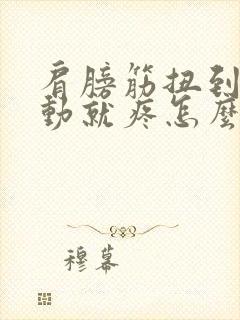 肩膀筋扭到
動就疼怎麼
穆幕